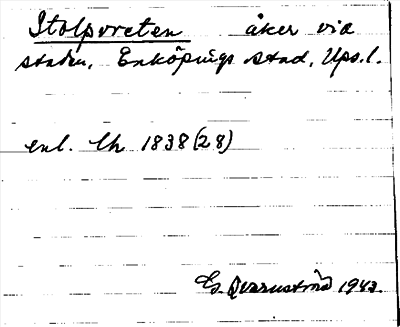 Stolpvreten åker vid
staden, Enköpings stad, Ups.l.
enl. lh 1838 (28)
G. Qvarnström 1943.